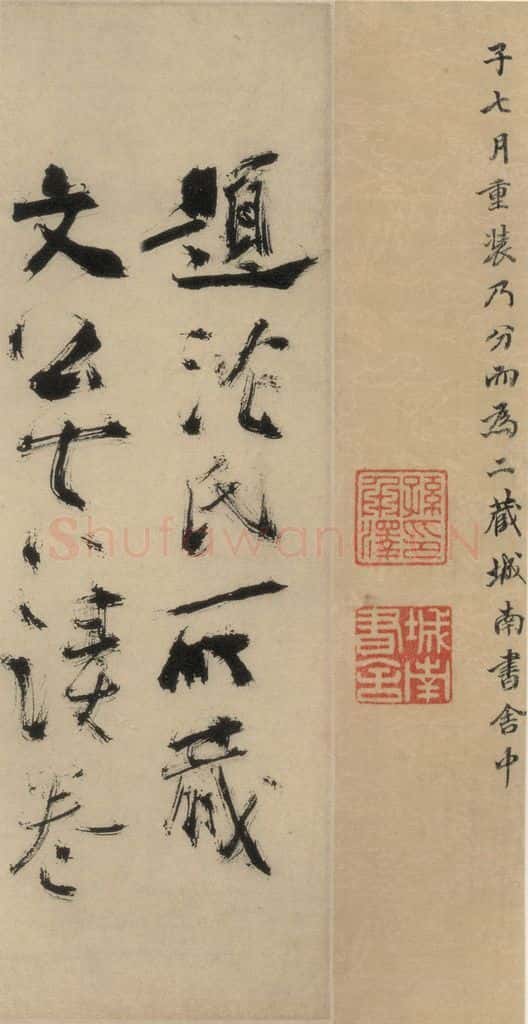 子七月重装乃分而為二藏城南書舍中
孫印承澤
城南書舍
題沈氏所藏
文公 卷
Shufawang.CN